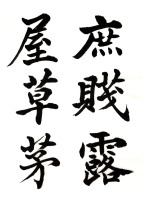 庶賤露
屋草茅